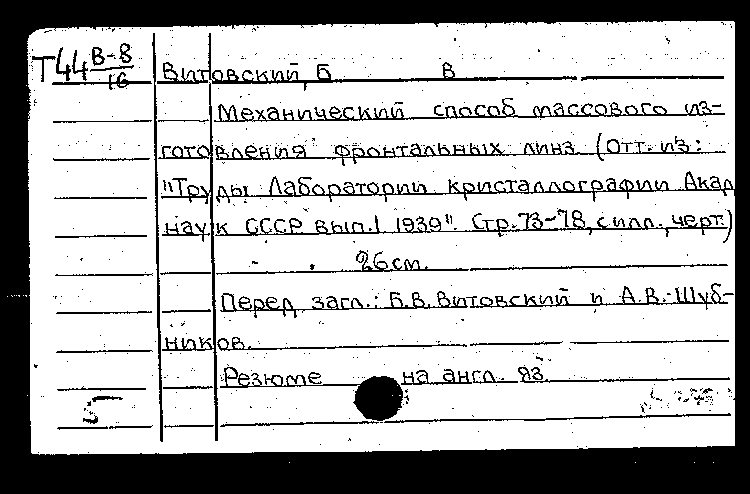 Т44 В-8/16 Витовский, Б В
Механический способ массового из-
готовления фронтальных линз (Отт. из:
"Труды Лаборатории кристаллографии Акад
наук СССР вып. 1 1939". Стр. 73-78, с илл., черт.)
26 см.
Перед загл.: Б.В. Витовский и А.В. Шуб-
ников.
Резюме на англ. яз.
5